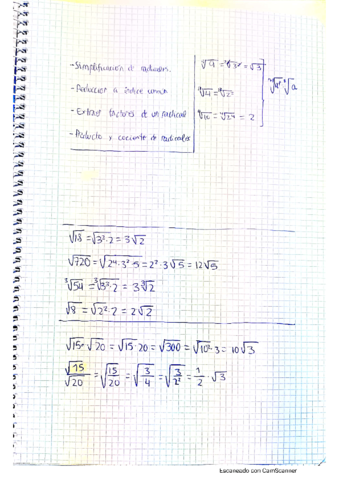 - Simplificación de radicales.
- Reducción a índice común
- Extraer factores de un radical
- Producto y cociente de radicales
√18 = √3²·2 = 3√2
√720 = √2⁴·3²·5 = 2²·3√5 = 12√5
³√54 = ³√3³·2 = 3 ³√2
√8 = √2²·2 = 2√2
√15·√20 = √15·20 = √300 = √10²·3 = 10√3
√15/√20 = √15/20 = √3/4 = √3/2² = 1/2 · √3
Escaneado con CamScanner